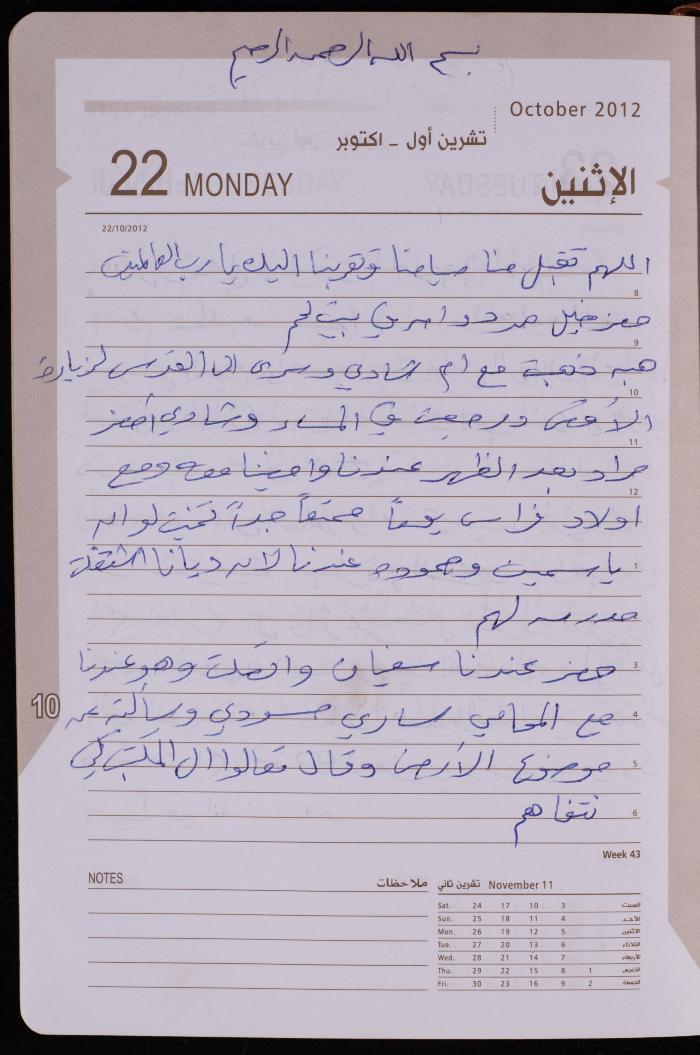 بسم الله الرحمن الرحيم
October 2012
تشرين أول - اكتوبر
22 MONDAY الإثنين
22/10/2012
اللهم تقبل منا صيامنا وتقربنا اليك يا رب العالمين
8
حضر خليل
بيت لحم
9
هبه ذهبت مع ام شادي وسرى الى القدس لزيارة
10
الأقصى ورجعت في المساء وشادي احضر
11
مراد بعد الظهر عندنا وامضينا معه ومع
12
اولاد فراس يوماً ممتعاً جداً تمنيت لو انه
ياسمين وحموده عندنا لانه ديانا
1
مدرسه لهم
حضر عندنا سفيان واتصلت وهو عندنا
3
مع المحامي ساري مسودي وسألته عن
4
10
موضوع الأرض وقال تعالوا الى المكتب لكي
5
نتفاهم
6
Week 43
NOTES ملاحظات
November 11 تشرين ثاني
Sat. 24 17 10 3 السبت
Sun. 25 18 11 4 الأحد
Mon. 26 19 12 5 الإثنين
Tue. 27 20 13 6 الثلاثاء
Wed. 28 21 14 7 الأربعاء
Thu. 29 22 15 8 1 الخميس
Fri. 30 23 16 9 2 الجمعة